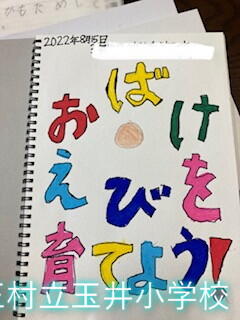 かもためして
2022年8月5日
おばけ
えびを
育てよう!
玉村立玉井小学校